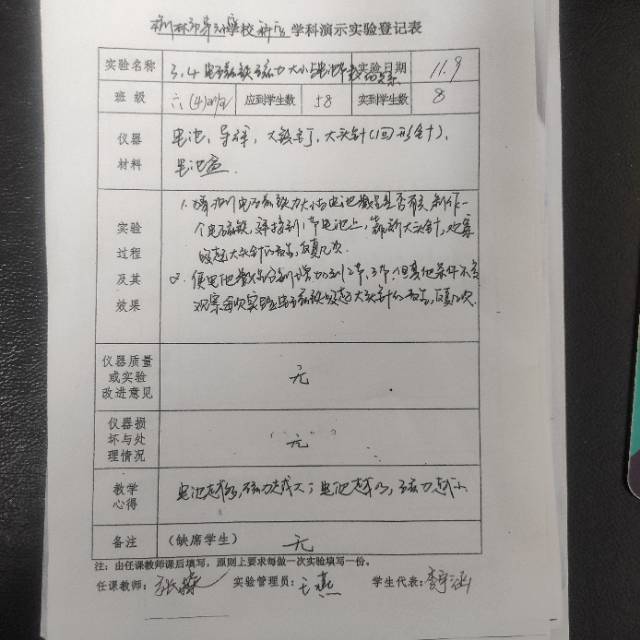 学校 学科演示实验登记表
实验名称 3.4 电磁铁磁力大小与电池 实验日期 11.9
班 级 六(4) 应到学生数 58 实到学生数 8
仪器 电池、导线、大铁钉、大头针(回形针)、
材料 电池盒
实验 1. 电磁铁磁力大小与电池数量是否有关,制作一
过程 个电磁铁, 接到1节电池上, 大头针,观察
及其 2. 使电池数量分别增加到2节,3节,但其他条件不变
效果 观察每次实验电磁铁吸起大头针的
仪器质量
或实验 无
改进意见
仪器损
坏与处 无
理情况
教学 电池越多,磁力越大;电池越少,磁力越小
心得
备注 (缺席学生) 无
注:由任课教师课后填写,原则上要求每做一次实验填写一份。
任课教师: 实验管理员:王燕 学生代表: